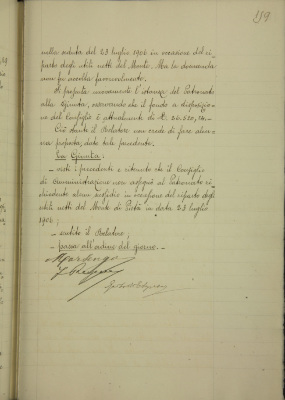 119
nella seduta del 23 luglio 1906 in occasione del ri-
parto degli utili netti del Monte. Ma la domanda
non fu accolta favorevolmente.
Si prospetta nuovamente l'istanza del Patronato
alla Giunta, osservando che il fondo a disposizio-
ne del Consiglio è attualmente di
Ciò stante il Relatore non crede di fare alcu-
na proposta, dato tale precedente.
La Giunta:
- visti i precedenti e ritenuto che il Consiglio
di Amministrazione non al Patronato ri-
chiedente alcun sussidio in occasione del riparto degli
utili netti del Monte di Pietà in data 23 luglio
1906;
- sentito il Relatore;
- passa all'ordine del giorno. -